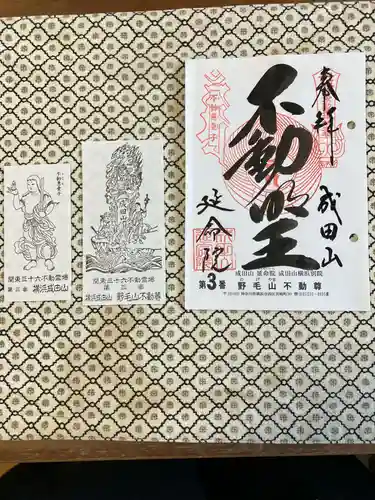 奉拝
不動明王
成田山
延命院
成田山 延命院 成田山横浜別院
第3番 野毛山不動尊
成田山
関東三十六不動霊場
第三番
横浜成田山 野毛山不動尊
関東三十六不動霊場
第三番
横浜成田山